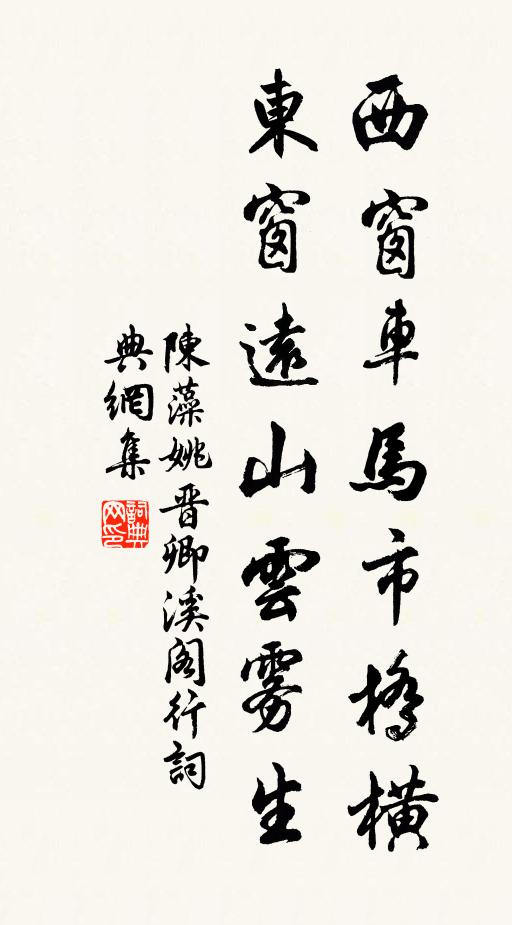 西窗車馬市橋橫
東窗遠山雲霧生
陳藻姚晋卿溪閣行詞
典網集
詞典
网印